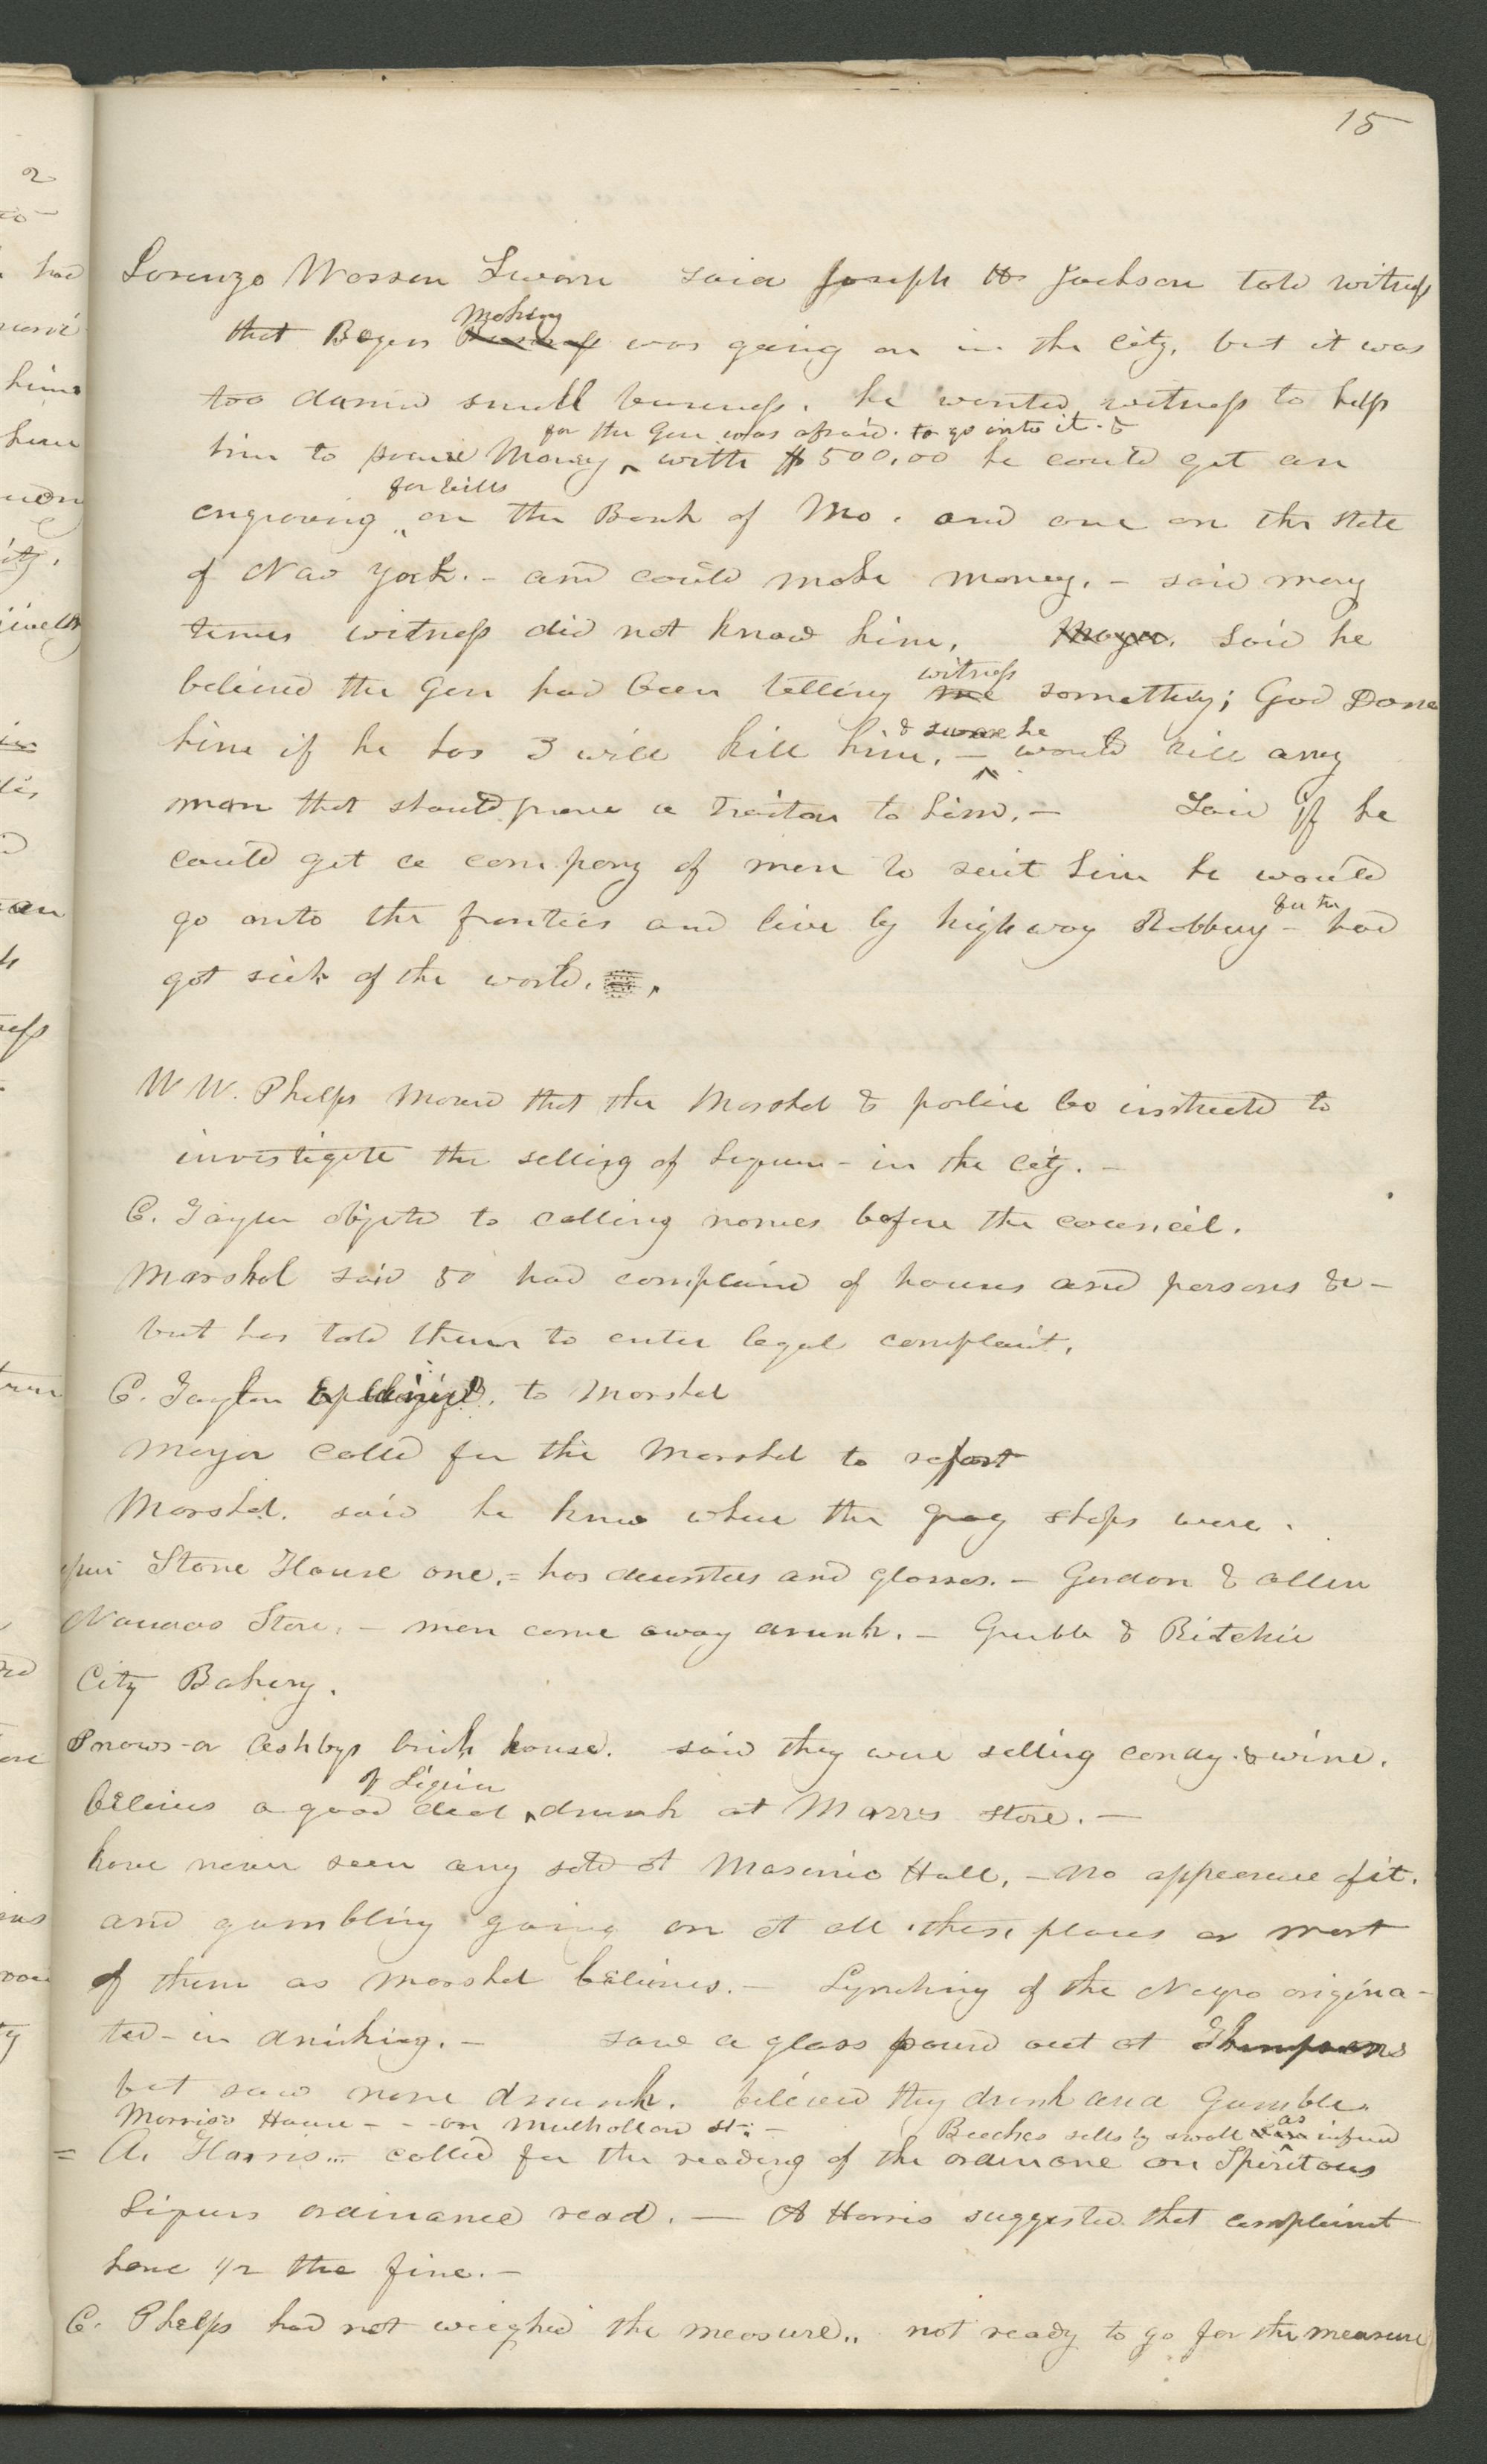 15
Lorenzo Wasson Sworn said Joseph H Jackson told witness
making
that Bogus Business was going on in the city, but it was
too damnd small business. he wanted witness to help
for the Gen was afraid. to go into it. &
him to procure Money, with $500,00 he could get an
for bills
engraving on the Bank of Mo. and one on the State
of New York. - and could make money. - said many
times witness did not know him, Mayor. Said he
witness
believed the Gen had been telling me something; God Damn
& swore he
him if he has I will kill him, - would kill any
man that should prove a Traitor to him. - Said if he
could get a company of men to suit him he would
go onto the frontiers and live by highway Robbery - had
for he
got sick of the world.
W W. Phelps moved that the Marshal & police be instructed to
investigate the selling of Liquors - in the city. -
C. Taylor objected to calling names before the council.
Marshal said 50 had complaind of houses and persons &c -
but has told them to enter legal complaint.
C. Taylor to Marshal
Mayor called for the Marshal to report
Marshal. said he knew where the grog shops were.
Stone House one, = has decanters and glasses. - Gordon & Allen
Nauvoo Store, - men come away drunk. - Grubb & Ritchie
City Bakery.
Snows or Ashbys brick house. said they were selling candy & wine.
of Liquor
believes a good deal drank at Marrs store. -
have never seen any sold at Masonic Hall, - no appearance of it.
and gambling going on at all these places or most
of them as Marshal believes. - Lynching of the Negro origina-
ted - in drinking. - saw a glass pourd out at Thompsons
but saw none drunk. believed they drink and Gamble.
Morrison House - - on Mulholland st. - Beeches sells by small as infused
= A. Harris - called for the reading of the ordinance on Spiritous
Liquors ordinance read. - A Harris suggested that complainant
have 1/2 the fine. -
C. Phelps had not weighed the measure,, not ready to go for the measure